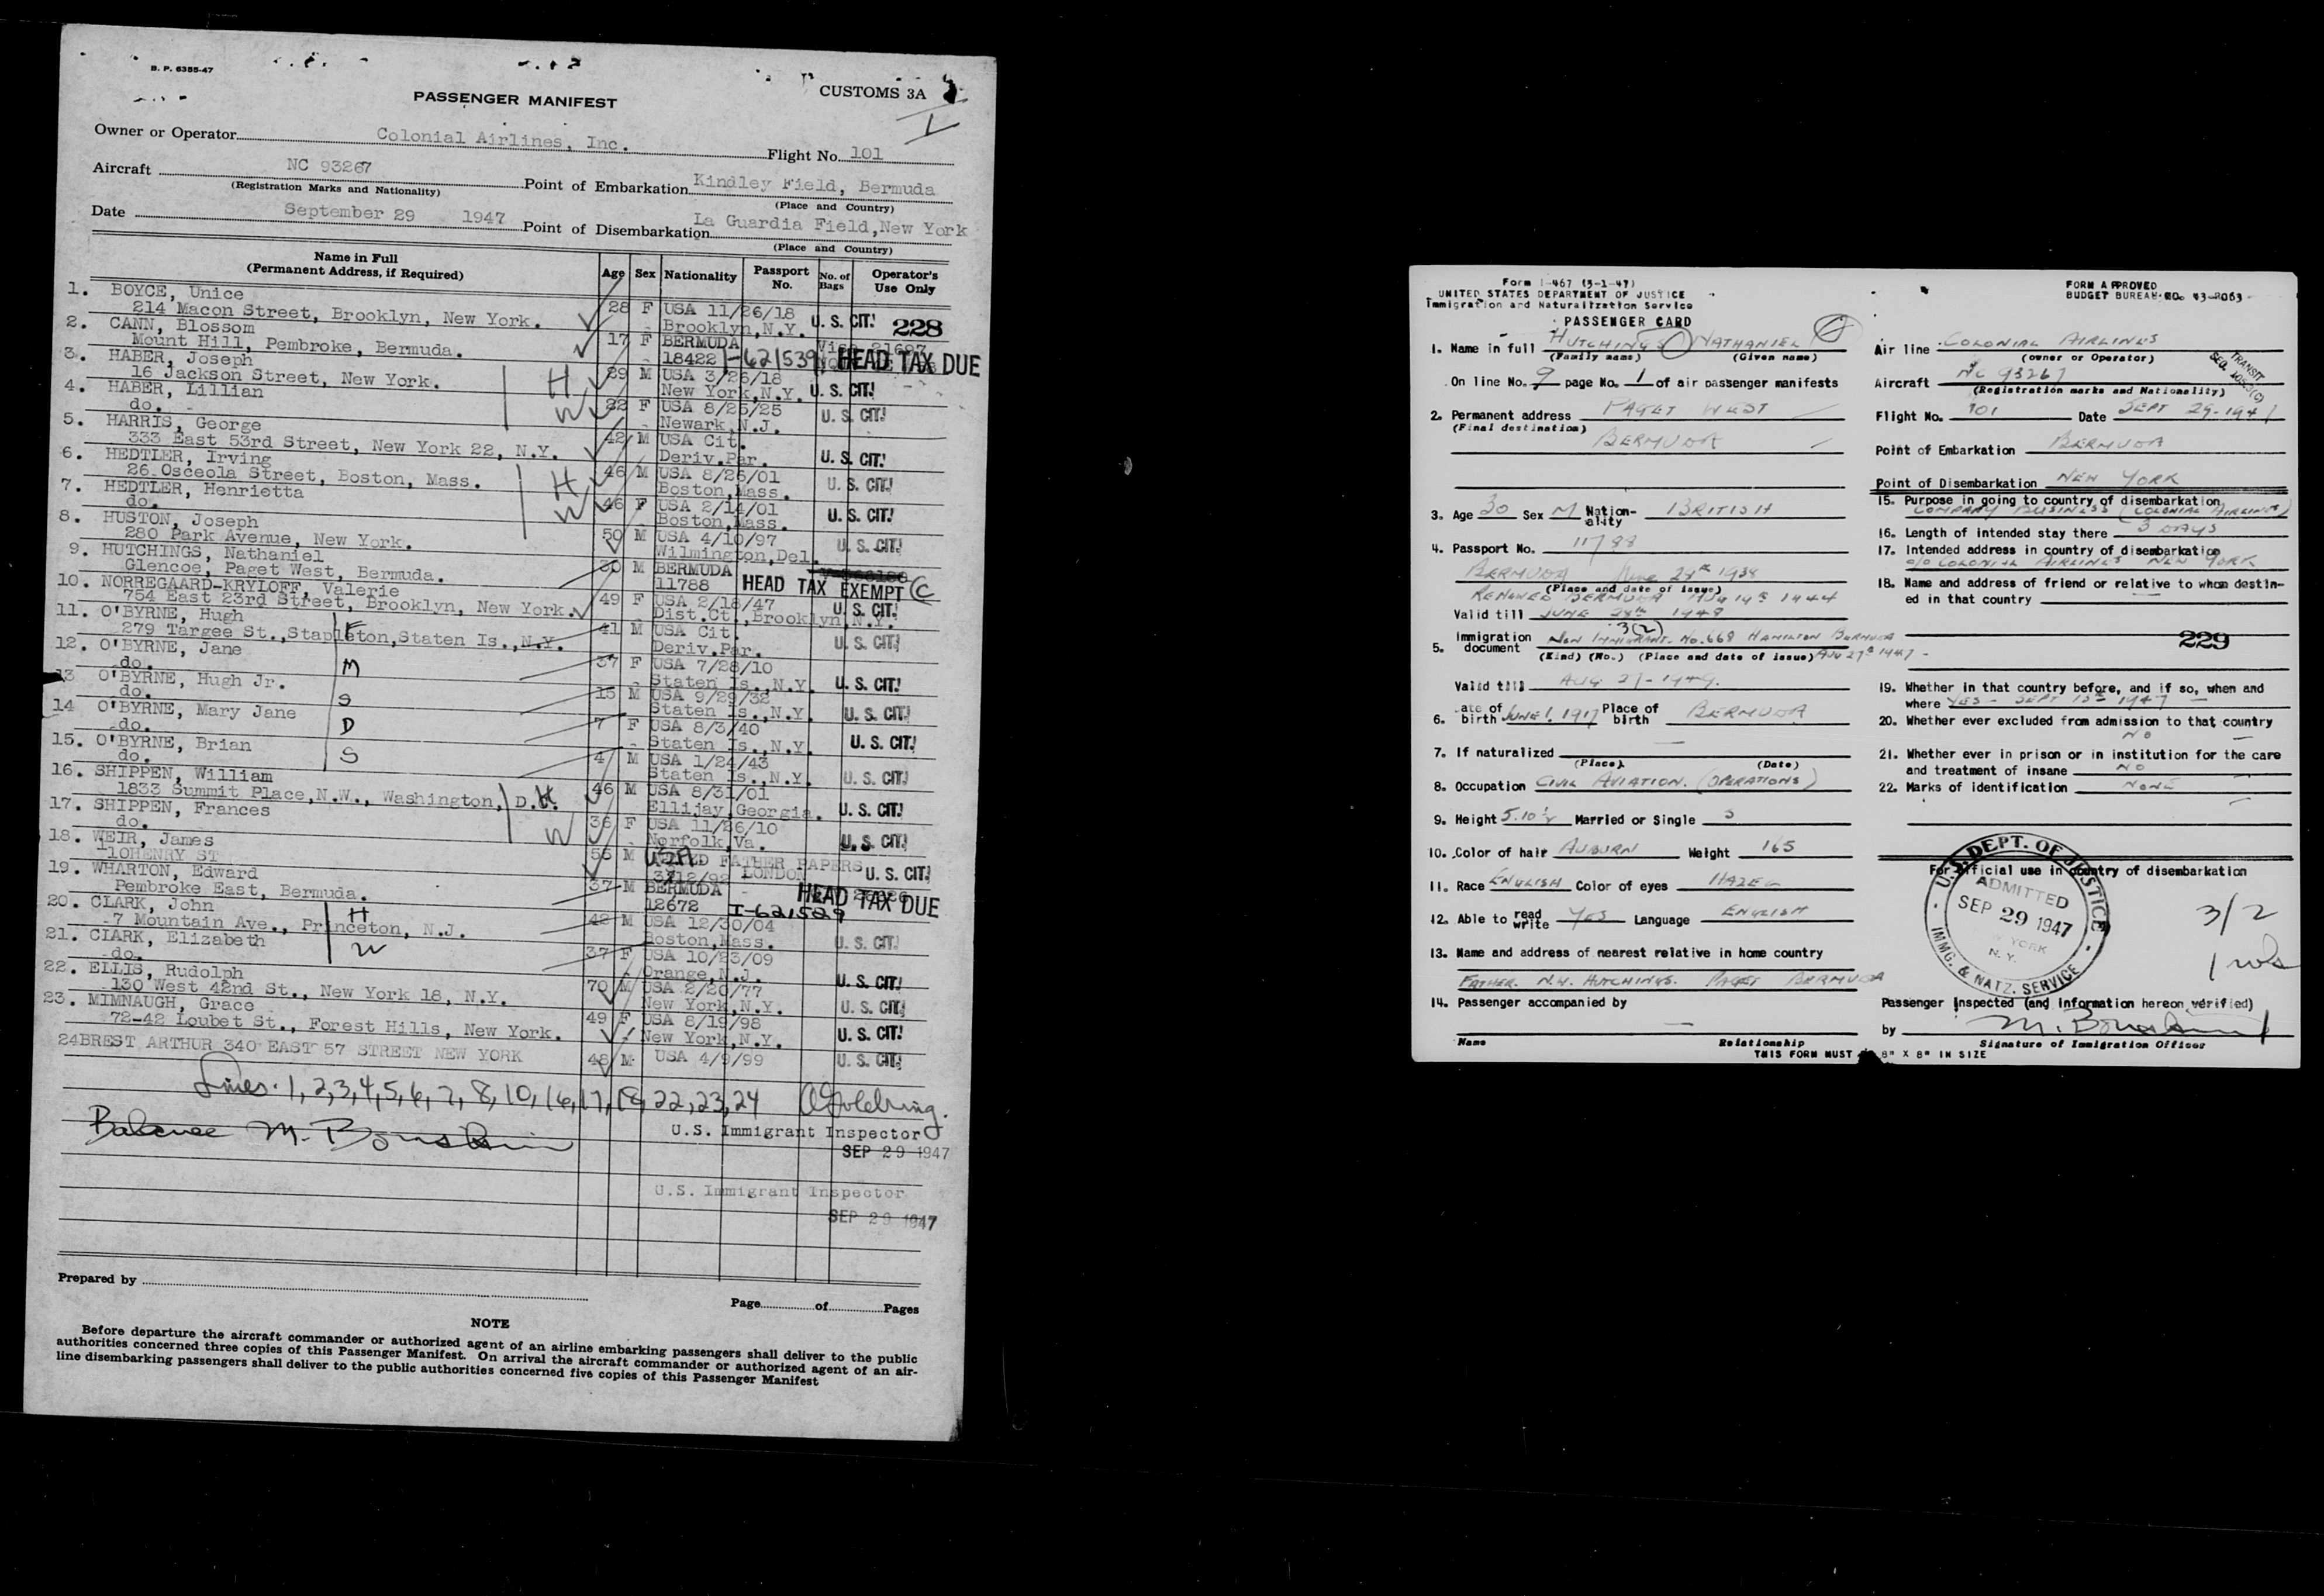 B. P. 6355-47
CUSTOMS 3A
PASSENGER MANIFEST
Owner or Operator Colonial Airlines, Inc. Flight No. 101
Aircraft NC 93267 Point of Embarkation Kindley Field, Bermuda
(Registration Marks and Nationality) (Place and Country)
Date September 29 1947 Point of Disembarkation La Guardia Field, New York
(Place and Country)
Name in Full (Permanent Address, if Required) Age Sex Nationality Passport No. No. of Bags Operator's Use Only
1. BOYCE, Unice 28 F USA 11/26/18
214 Macon Street, Brooklyn, New York. Brooklyn, N.Y. U. S. CIT. 228
2. CANN, Blossom 17 F BERMUDA
Mount Hill, Pembroke, Bermuda. 18422 I-621539 HEAD TAX DUE
3. HABER, Joseph 29 M USA 3/26/18
16 Jackson Street, New York. H New York, N.Y. U. S. CIT.
4. HABER, Lillian 22 F USA 8/25/25
do. W Newark, N.J. U. S. CIT.
5. HARRIS, George 42 M USA Cit.
333 East 53rd Street, New York 22, N.Y. Deriv.Par. U. S. CIT.
6. HEDTLER, Irving 46 M USA 8/26/01
26 Osceola Street, Boston, Mass. H Boston, Mass. U. S. CIT.
7. HEDTLER, Henrietta 46 F USA 2/14/01
do. W Boston, Mass. U. S. CIT.
8. HUSTON, Joseph 50 M USA 4/10/97
280 Park Avenue, New York. Wilmington, Del. U. S. CIT.
9. HUTCHINGS, Nathaniel 30 M BERMUDA
Glencoe, Paget West, Bermuda. 11788 HEAD TAX EXEMPT C
10. NORREGAARD-KRYLOFF, Valerie 49 F USA 2/18/47
754 East 23rd Street, Brooklyn, New York. Dist.Ct., Brooklyn, N.Y. U. S. CIT.
11. O'BYRNE, Hugh 41 M USA Cit.
279 Targee St., Stapleton, Staten Is., N.Y. F Deriv.Par. U. S. CIT.
12. O'BYRNE, Jane 37 F USA 7/28/10
do. M Staten Is., N.Y. U. S. CIT.
13 O'BYRNE, Hugh Jr. 15 M USA 9/29/32
do. S Staten Is., N.Y. U. S. CIT.
14 O'BYRNE, Mary Jane 7 F USA 8/3/40
do. D Staten Is., N.Y. U. S. CIT.
15. O'BYRNE, Brian 4 M USA 1/24/43
do. S Staten Is., N.Y. U. S. CIT.
16. SHIPPEN, William 46 M USA 8/31/01
1833 Summit Place, N.W., Washington, D.C. H Ellijay, Georgia. U. S. CIT.
17. SHIPPEN, Frances 36 F USA 11/26/10
do. W Norfolk, Va. U. S. CIT.
18. WEIR, James 55 M USA FATHER PAPERS
110HENRY ST 3/12/92 LONDON U. S. CIT.
19. WHARTON, Edward 37 M BERMUDA
Pembroke East, Bermuda. 12672 I-621529 HEAD TAX DUE
20. CLARK, John 42 M USA 12/30/04
7 Mountain Ave., Princeton, N.J. H Boston, Mass. U. S. CIT.
21. CLARK, Elizabeth 37 F USA 10/23/09
do. W Orange, N.J. U. S. CIT.
22. ELLIS, Rudolph 70 M USA 2/20/77
130 West 42nd St., New York 18, N.Y. New York, N.Y. U. S. CIT.
23. MIMNAUGH, Grace 49 F USA 8/19/98
72-42 Loubet St., Forest Hills, New York. New York, N.Y. U. S. CIT.
24BREST ARTHUR 340 EAST 57 STREET NEW YORK 48 M USA 4/9/99 U. S. CIT.
Lines 1, 2, 3, 4, 5, 6, 7, 8, 10, 16, 17, 18, 22, 23, 24
U.S. Immigrant Inspector
Balance M.
SEP 29 1947
U.S. Immigrant Inspector
SEP 29 1947
Prepared by
Page of Pages
NOTE
Before departure the aircraft commander or authorized agent of an airline embarking passengers shall deliver to the public
authorities concerned three copies of this Passenger Manifest. On arrival the aircraft commander or authorized agent of an air-
line disembarking passengers shall deliver to the public authorities concerned five copies of this Passenger Manifest
Form I-467 (5-1-47)
UNITED STATES DEPARTMENT OF JUSTICE
Immigration and Naturalization Service
PASSENGER CARD
FORM APPROVED
BUDGET BUREAU NO. 43-R063
1. Name in full HUTCHINGS NATHANIEL
(Family name) (Given name)
On line No. 9 page No. 1 of air passenger manifests
2. Permanent address PAGET WEST
(Final destination) BERMUDA
3. Age 30 Sex M Nationality BRITISH
4. Passport No. 11788
BERMUDA June 28th 1938
(Place and date of issue)
RENEWED BERMUDA 1944
Valid till JUNE 28th 1948
3(2)
5. Immigration document NON IMMIGRANT. No. 668 HAMILTON BERMUDA
(Kind) (No.) (Place and date of issue) AUG 27th 1947
Valid till AUG 27-1949.
6. Date of birth JUNE 1, 1917 Place of birth BERMUDA
7. If naturalized
(Place) (Date)
8. Occupation CIVIL AVIATION. (OPERATIONS)
9. Height 5.10½ Married or Single S
10. Color of hair AUBURN Weight 165
11. Race ENGLISH Color of eyes HAZEL
12. Able to read write YES Language ENGLISH
13. Name and address of nearest relative in home country
FATHER. N.H. HUTCHINGS. PAGET BERMUDA
14. Passenger accompanied by
Name Relationship
Air line COLONIAL AIRLINES
(owner or Operator)
TRANSIT
Aircraft NC 93267
(Registration marks and Nationality)
Flight No. 101 Date SEPT 29-1947
Point of Embarkation BERMUDA
Point of Disembarkation NEW YORK
15. Purpose in going to country of disembarkation
COMPANY BUSINESS (COLONIAL AIRLINES)
16. Length of intended stay there 3 DAYS
17. Intended address in country of disembarkation
c/o COLONIAL AIRLINES NEW YORK
18. Name and address of friend or relative to whom destin-
ed in that country
229
19. Whether in that country before, and if so, when and
where YES - SEPT 15th 1947
20. Whether ever excluded from admission to that country
NO
21. Whether ever in prison or in institution for the care
and treatment of insane NO
22. Marks of identification NONE
For official use in country of disembarkation
U.S. DEPT. OF JUSTICE
ADMITTED
SEP 29 1947
N. Y.
IMMG. & NATZ. SERVICE
3/2
Passenger inspected (and information hereon verified)
by M.
Signature of Immigration Officer
THIS FORM MUST 8" X 8" IN SIZE